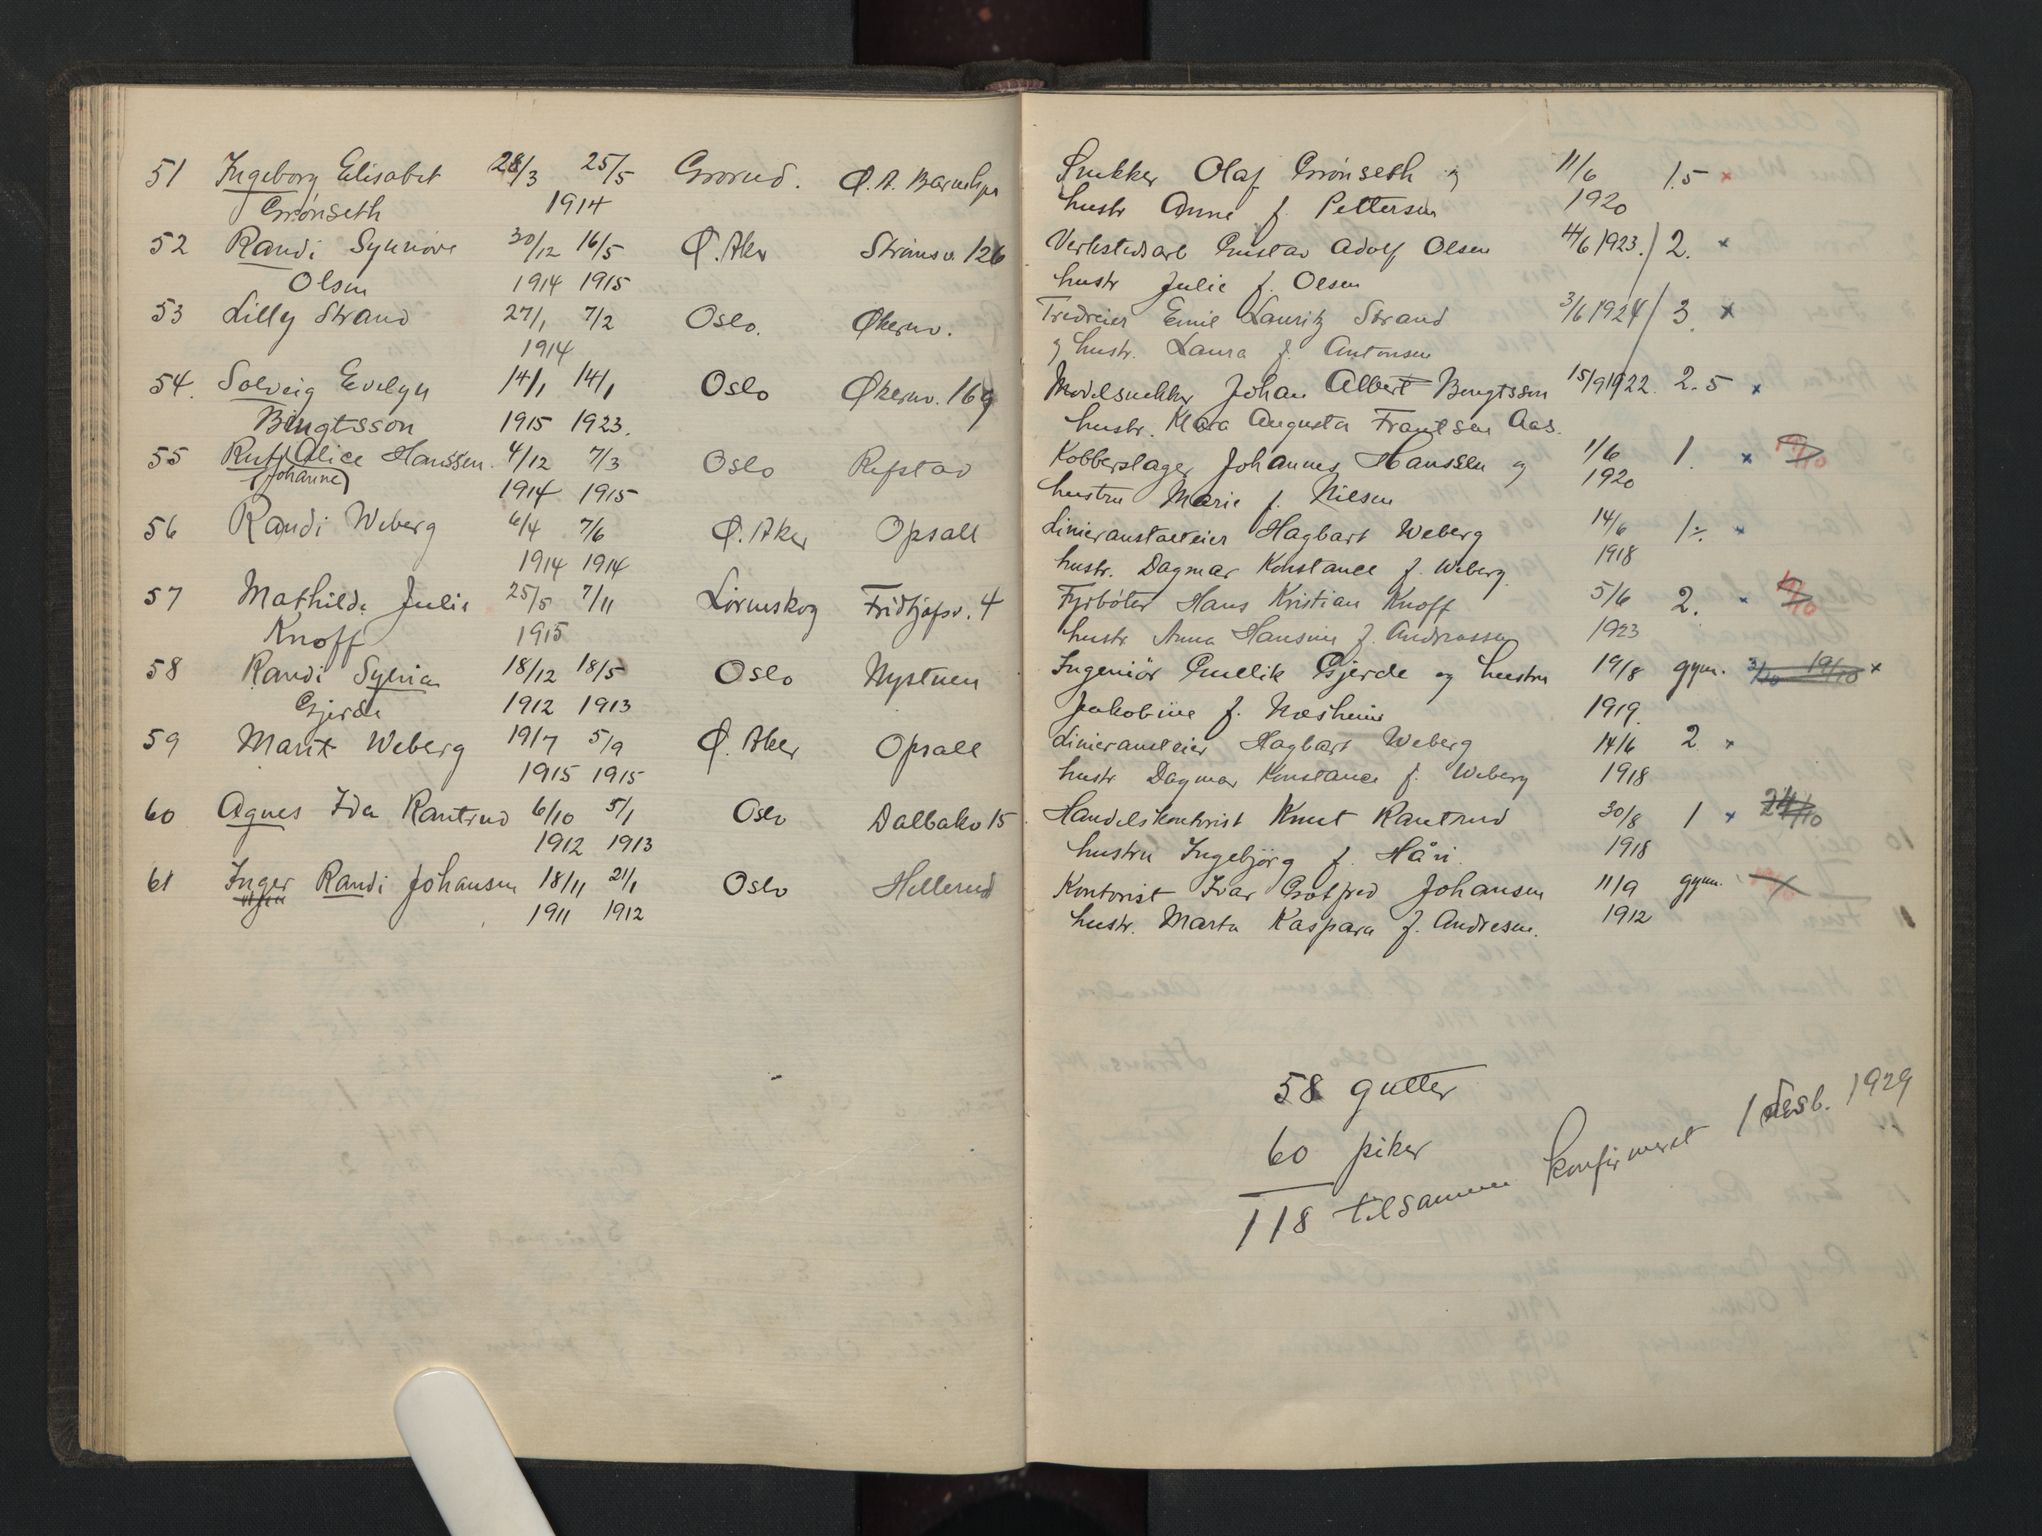 51 Ingeborg Elisabet 28/3 25/5 Grorud. Ø. A. Snekker Olaf Grønseth og 11/6 1.5 x
Grønseth 1914 hustr Anne f. Pettersen 1920
52 Randi Synnøve 30/12 16/5 Ø. Aker Strømsv. 126 Verkstedsarb Gustav Adolf Olsen 4/6 1923. 2. x
Olsen 1914 1915 hustr Julie f. Olsen
53 Lilly Strand 27/1 7/2 Oslo. Økernv. Emil Lauritz Strand 3/6 1924 3. x
1914 og hustr. Laura f. Antonsen
54. Solveig Evelyn 14/1 14/1 Oslo Økernv. 169 Modelsnekker Johan Albert Bengtsson 15/9 1922. 2.5 x
Bengtsson 1915 1923. hustr. Klara Augusta Frantsen Aas.
55 Ruth Alice Hanssen. 4/12 7/3 Oslo Refstad Kobberslager Johannes Hanssen og 1/6 1. x
(Johanne) 1914 1915 hustru Marie f. Nilsen 1920
56 Randi Weberg 6/4 7/6 Ø. Aker Opsall Hagbart Weberg 14/6 1 ÷. x
1914 1914 hustr. Dagmar Konstance f. Weberg. 1918
57 Mathilde Julie 25/5 7/11 Lørenskog Fridtjofsv. 4 Fyrbøter Hans Kristian Knoff 5/6 2. x
Knoff 1915 hustr Anna Hansine f. Andreassen 1923
58 Randi Sylvia 18/12 18/5 Oslo Nystuen Ingeniør Gjerde og hustru 19/8 gym. 3/10 19/10 x
Gjerde 1912 1913 Jakobine f. Næsheim 1919.
59 Marit Weberg 19/7 5/9 Ø. Aker Opsall Hagbart Weberg 14/6 2 x
1915 1915 hustr. Dagmar Konstance f. Weberg 1918
60 Agnes Ida Rantrud 6/10 5/1 Oslo Dalbakv 15 Handelskontorist Knut Rantrud 30/8 1 x 24/10
1912 1913 hustru Ingebjörg f. Håvi. 1918
61 Inger Randi Johansen 18/11 21/1 Oslo Hellerud Kontorist Ivar Gotfred Johansen 11/9 gym.
1911 1912 hustr. Marta Kaspara f. Andresen. 1912
58 gutter
60 piker
118 tilsammen konfirmeret 1 desb. 1929